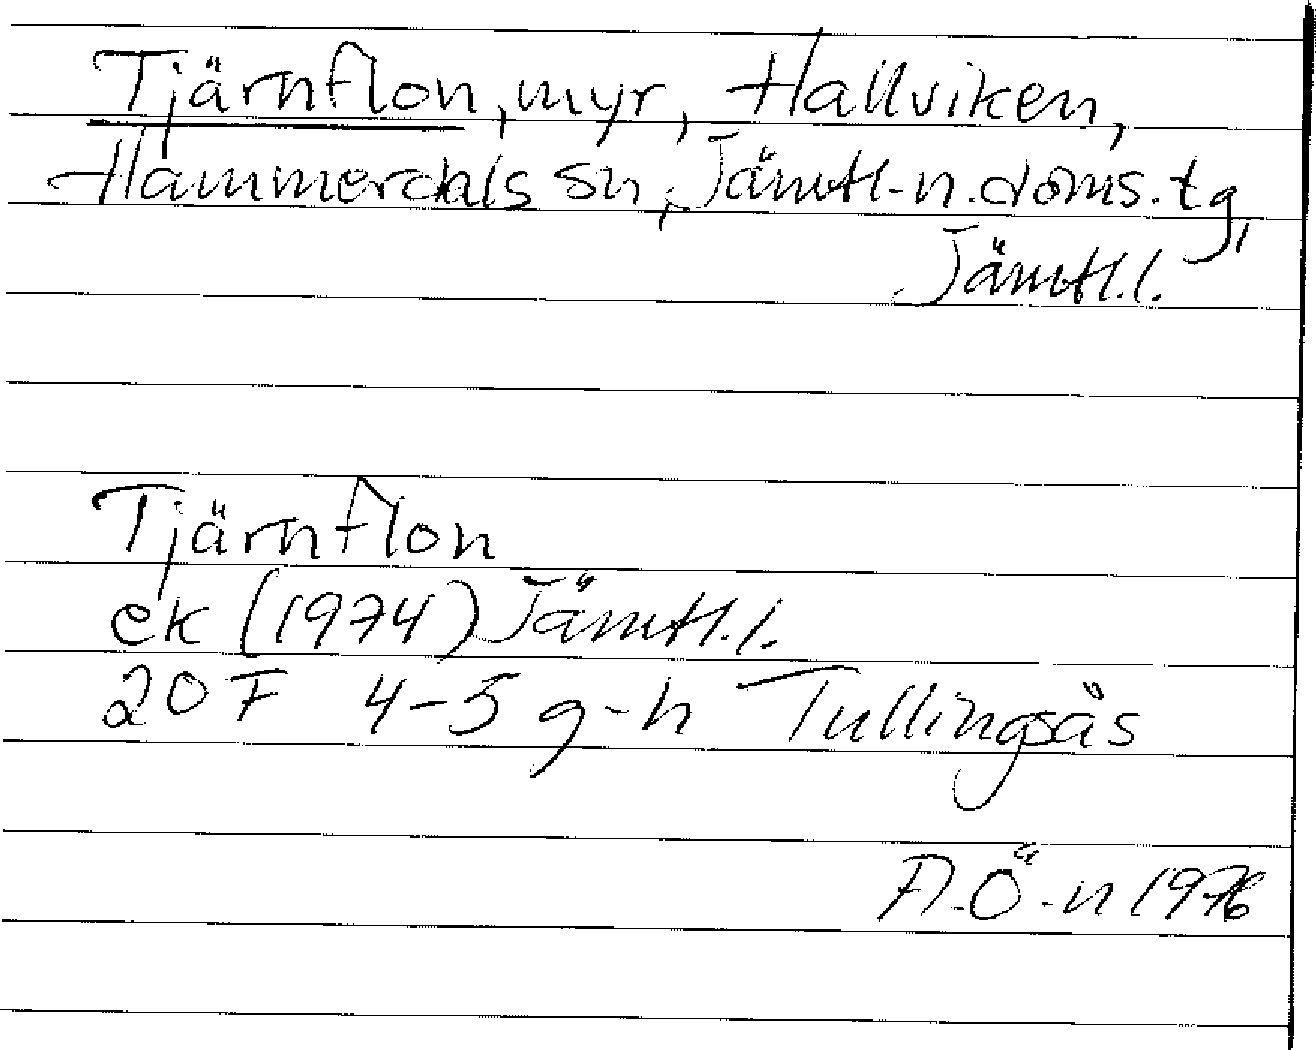 Tjärnflon, myr, Hallviken,
Hammerdals sn, Jämtl. n. doms. tg,
Jämtl. l.
Tjärnflon
ek (1974) Jämtl. l.
20 F 4-5 g-h Tullingsås
A.Ö-n 1976